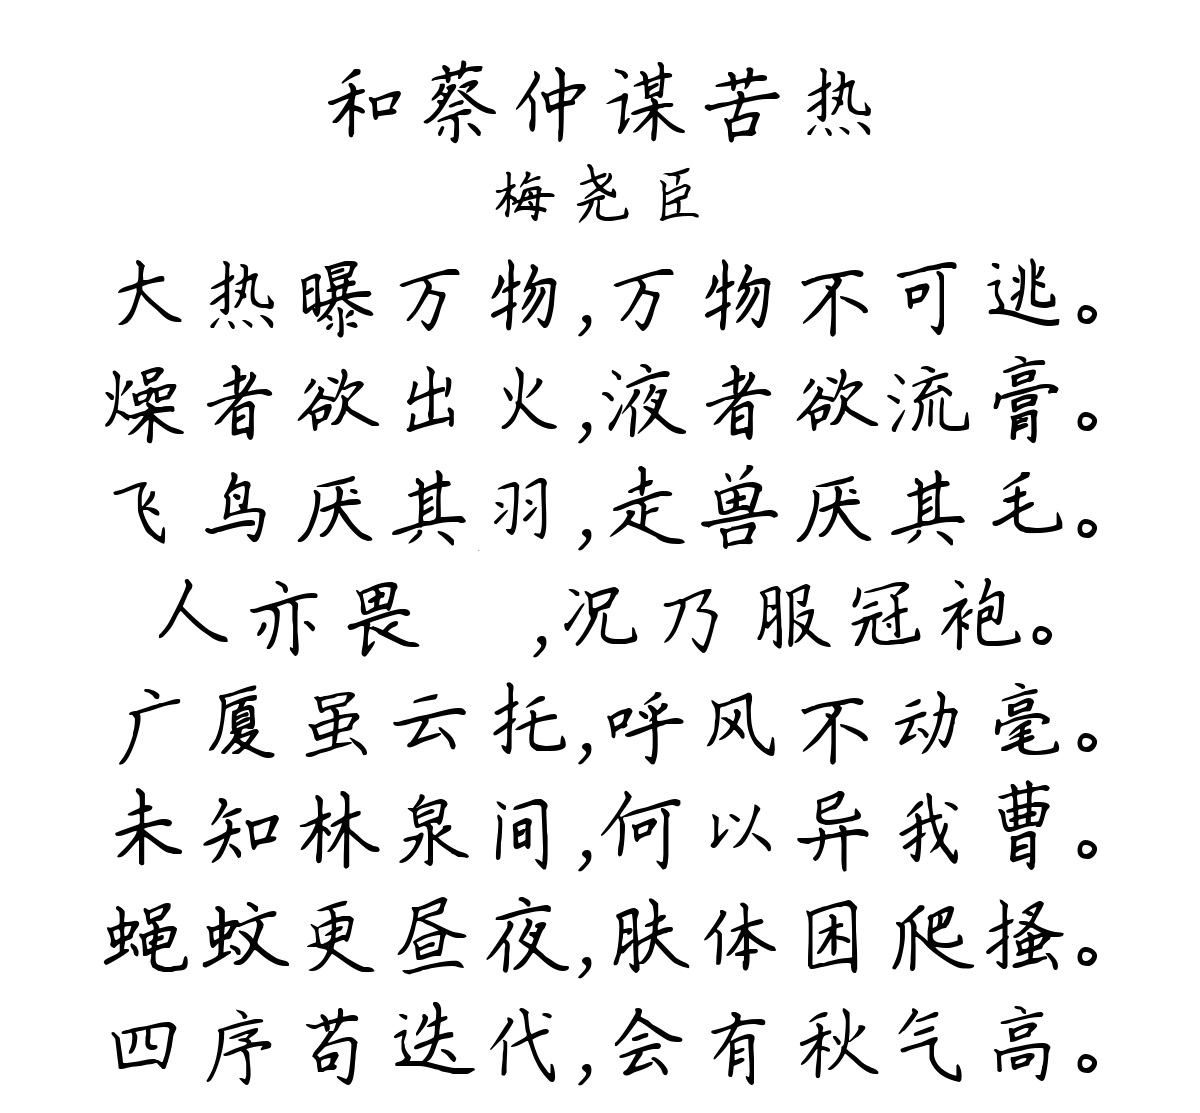 和蔡仲谋苦热
梅尧臣
大热曝万物,万物不可逃。
燥者欲出火,液者欲流膏。
飞鸟厌其羽,走兽厌其毛。
人亦畏 ,况乃服冠袍。
广厦虽云托,呼风不动毫。
未知林泉间,何以异我曹。
蝇蚊更昼夜,肤体困爬搔。
四序苟迭代,会有秋气高。